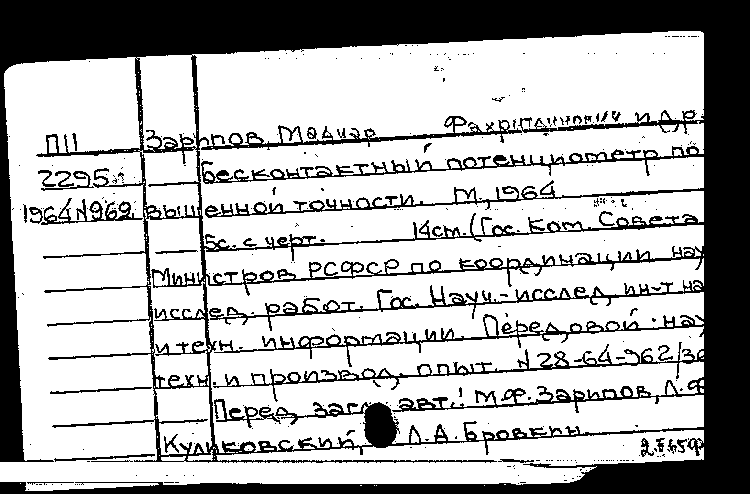 П11 Зарипов, Мадияр Фахритдинович и др.
2295 Бесконтактный потенциометр по
1964 №962. вышенной точности. М, 1964
5с. с черт. 14см. (Гос. Ком. Совета
Министров РСФСР по координации нау
исслед. работ. Гос. Науч.-исслед. ин-т на
и техн. информации. Передовой нау
техн. и производ. опыт. №28-64-962/36
Перед загл. авт.: М.Ф. Зарипов, Л.Ф
Куликовский, Л.А. Бровкин.